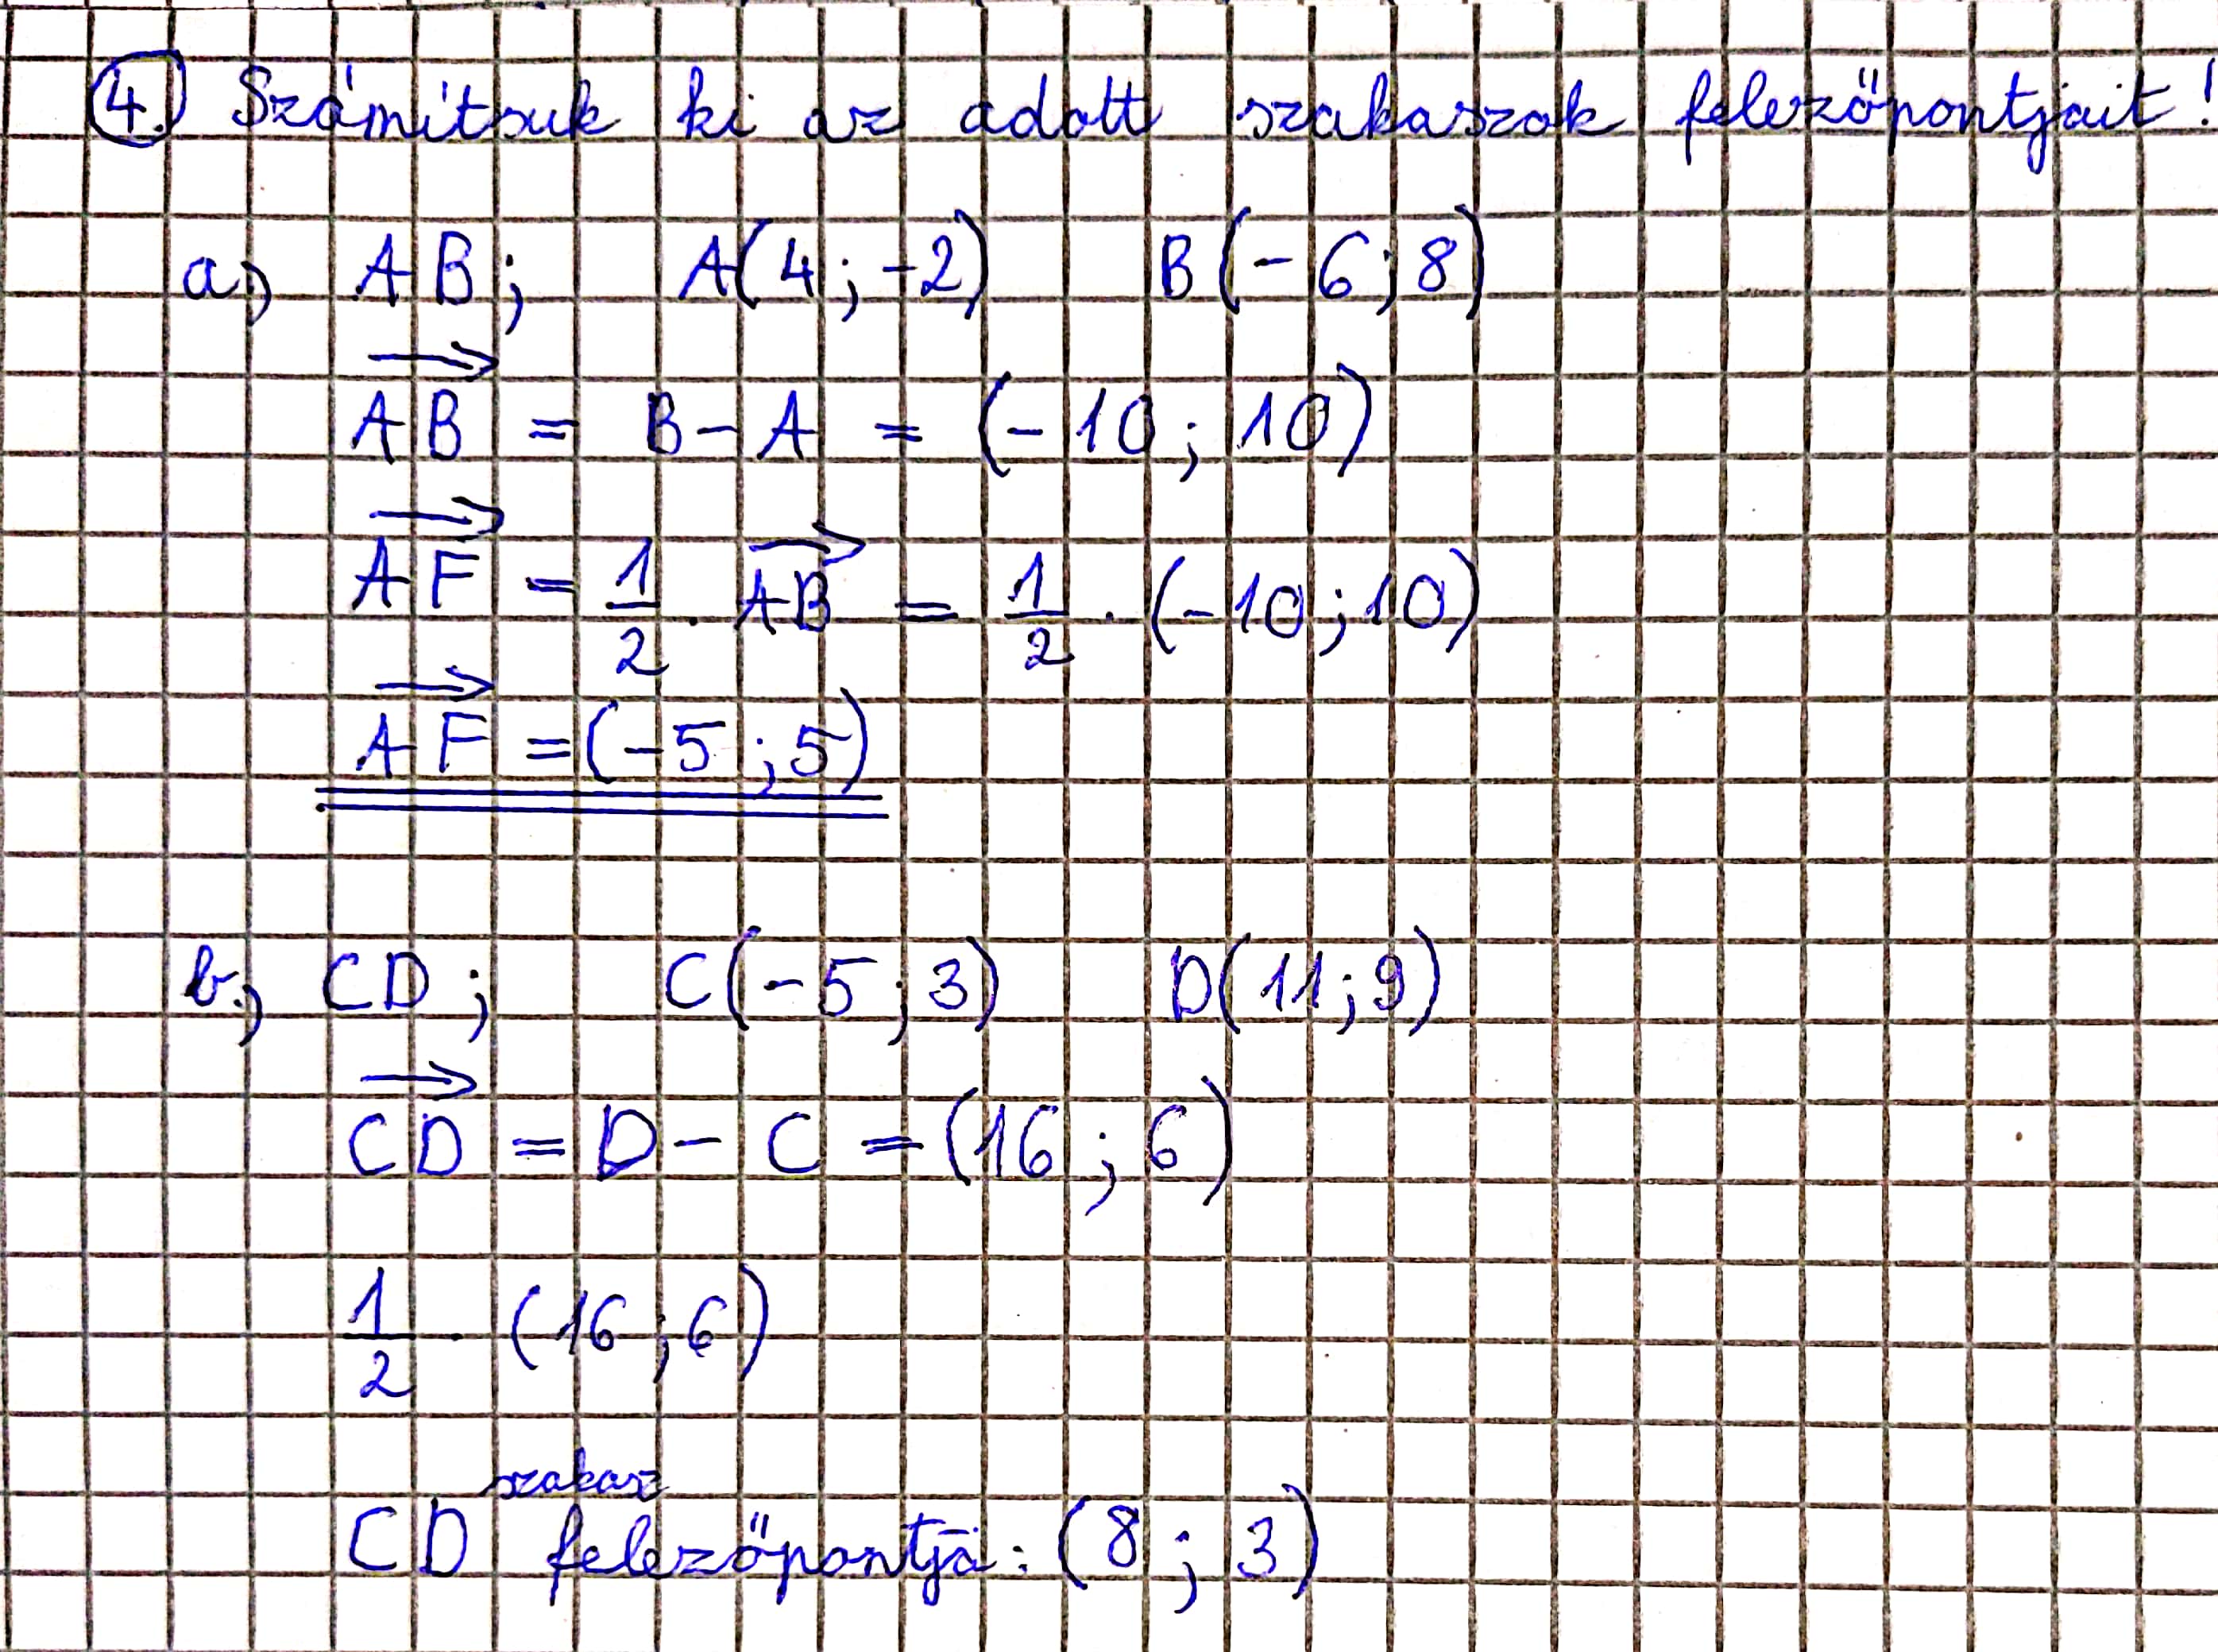 4. Számítsuk ki az adott szakaszok felezőpontjait!
a.) AB; A(4;-2) B(-6;8)
→AB = B-A = (-10; 10)
→AF = 1/2 · →AB = 1/2 · (-10;10)
→AF = (-5;5)
b.) CD; C(-5;3) D(11;9)
→CD = D-C = (16;6)
1/2 · (16;6)
CD szakasz felezőpontja: (8;3)